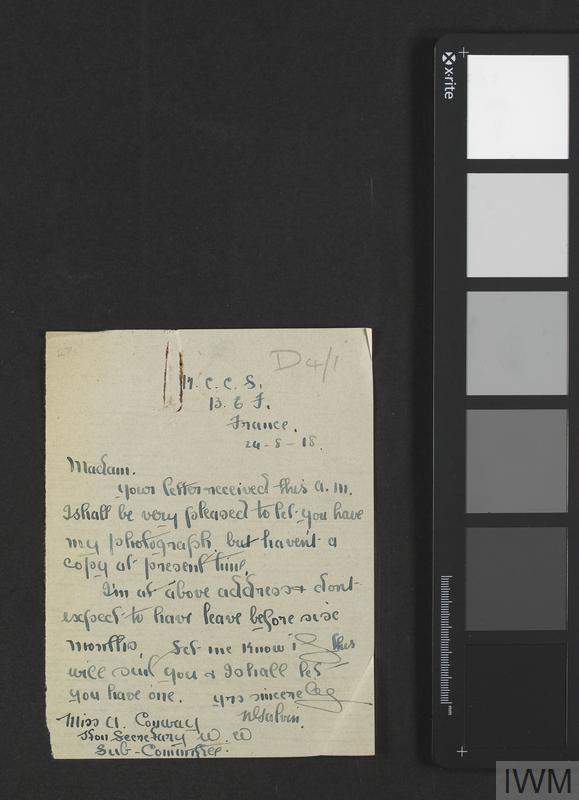 D4/1
17. C. C. S.
B. E F.
France.
24-8-18.
Madam.
your letter received this a.m.
I shall be very pleased to let you have
my photograph, but haven't a
copy at present time.
I'm at above address & dont
expect to have leave before six
months. Let me know if this
will suit you & I shall let
you have one. yrs sincerely
Miss A. Conway
Hon Secretary W. W
Sub-Committee.
x-rite
mm
IWM